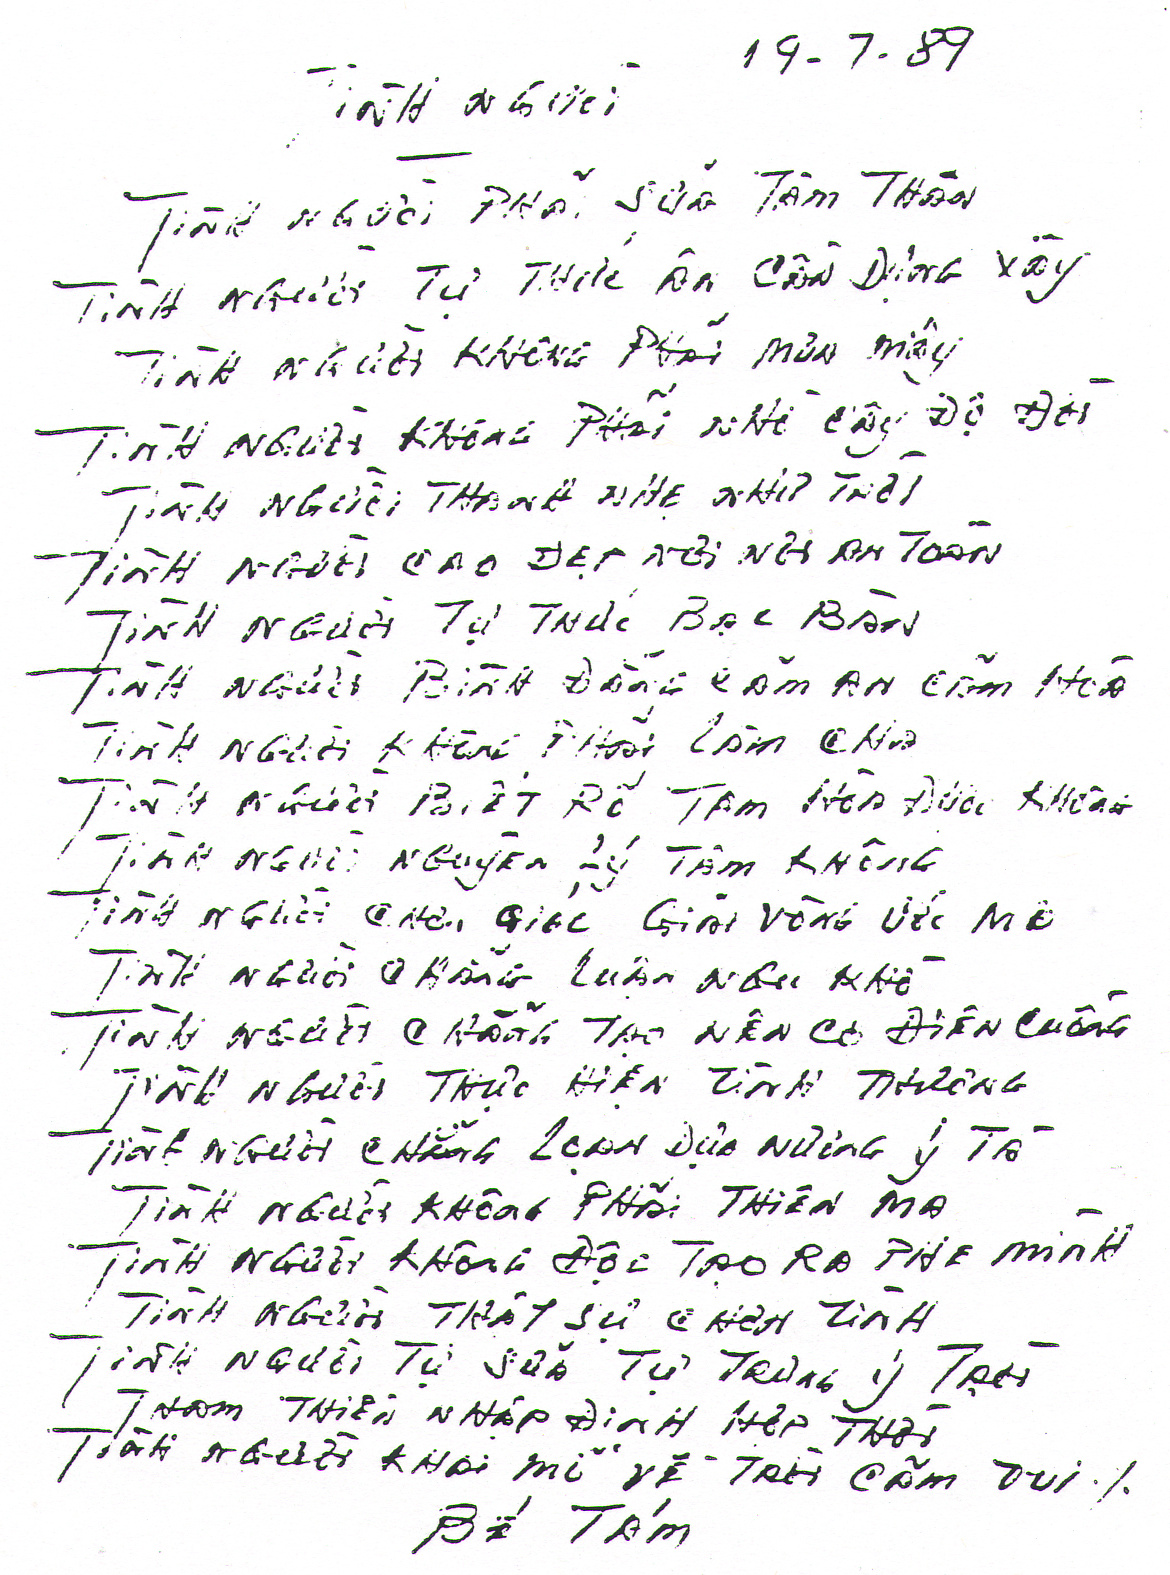 19-7-89
TÌNH NGƯỜI
TÌNH NGƯỜI PHẢI SỬA TÂM THÂN
TÌNH NGƯỜI TỰ THỨC ÂN CẦN DỰNG XÂY
TÌNH NGƯỜI KHÔNG PHẢI MƯA MÂY
TÌNH NGƯỜI KHÔNG PHẢI NHỜ CẬY ĐỘ ĐỜI
TÌNH NGƯỜI THANH NHẸ NHƯ TRỜI
TÌNH NGƯỜI CAO ĐẸP NƠI NƠI AN TOÀN
TÌNH NGƯỜI TỰ THỨC BẠC BÀN
TÌNH NGƯỜI BÌNH ĐẲNG CẢM AN CẢM HÒA
TÌNH NGƯỜI KHÔNG PHẢI LÀM CHA
TÌNH NGƯỜI BIẾT RÕ TAM HÒA ĐƯỢC KHÔNG
TÌNH NGƯỜI NGUYÊN LÝ TÂM KHÔNG
TÌNH NGƯỜI CHƠN GIÁC GIẢI VÒNG ƯỚC MƠ
TÌNH NGƯỜI CHẲNG LUẬN NGU KHỜ
TÌNH NGƯỜI CHẲNG TẠO NÊN CƠ ĐIÊN CUỒNG
TÌNH NGƯỜI THỰC HIỆN TÌNH THƯƠNG
TÌNH NGƯỜI CHẲNG LOẠN DỰA NƯƠNG Ý TÀ
TÌNH NGƯỜI KHÔNG PHẢI THIÊN MA
TÌNH NGƯỜI KHÔNG ĐỘC TẠO RA PHE MÌNH
TÌNH NGƯỜI THẬT SỰ CHƠN TÌNH
TÌNH NGƯỜI TỰ SỬA TỰ TRÙNG Ý TRỜI
THAM THIỀN NHẬP ĐỊNH HỢP THỜI
TÌNH NGƯỜI KHAI MỞ VỀ TRỜI CẢM VUI ./.
BÉ TÁM